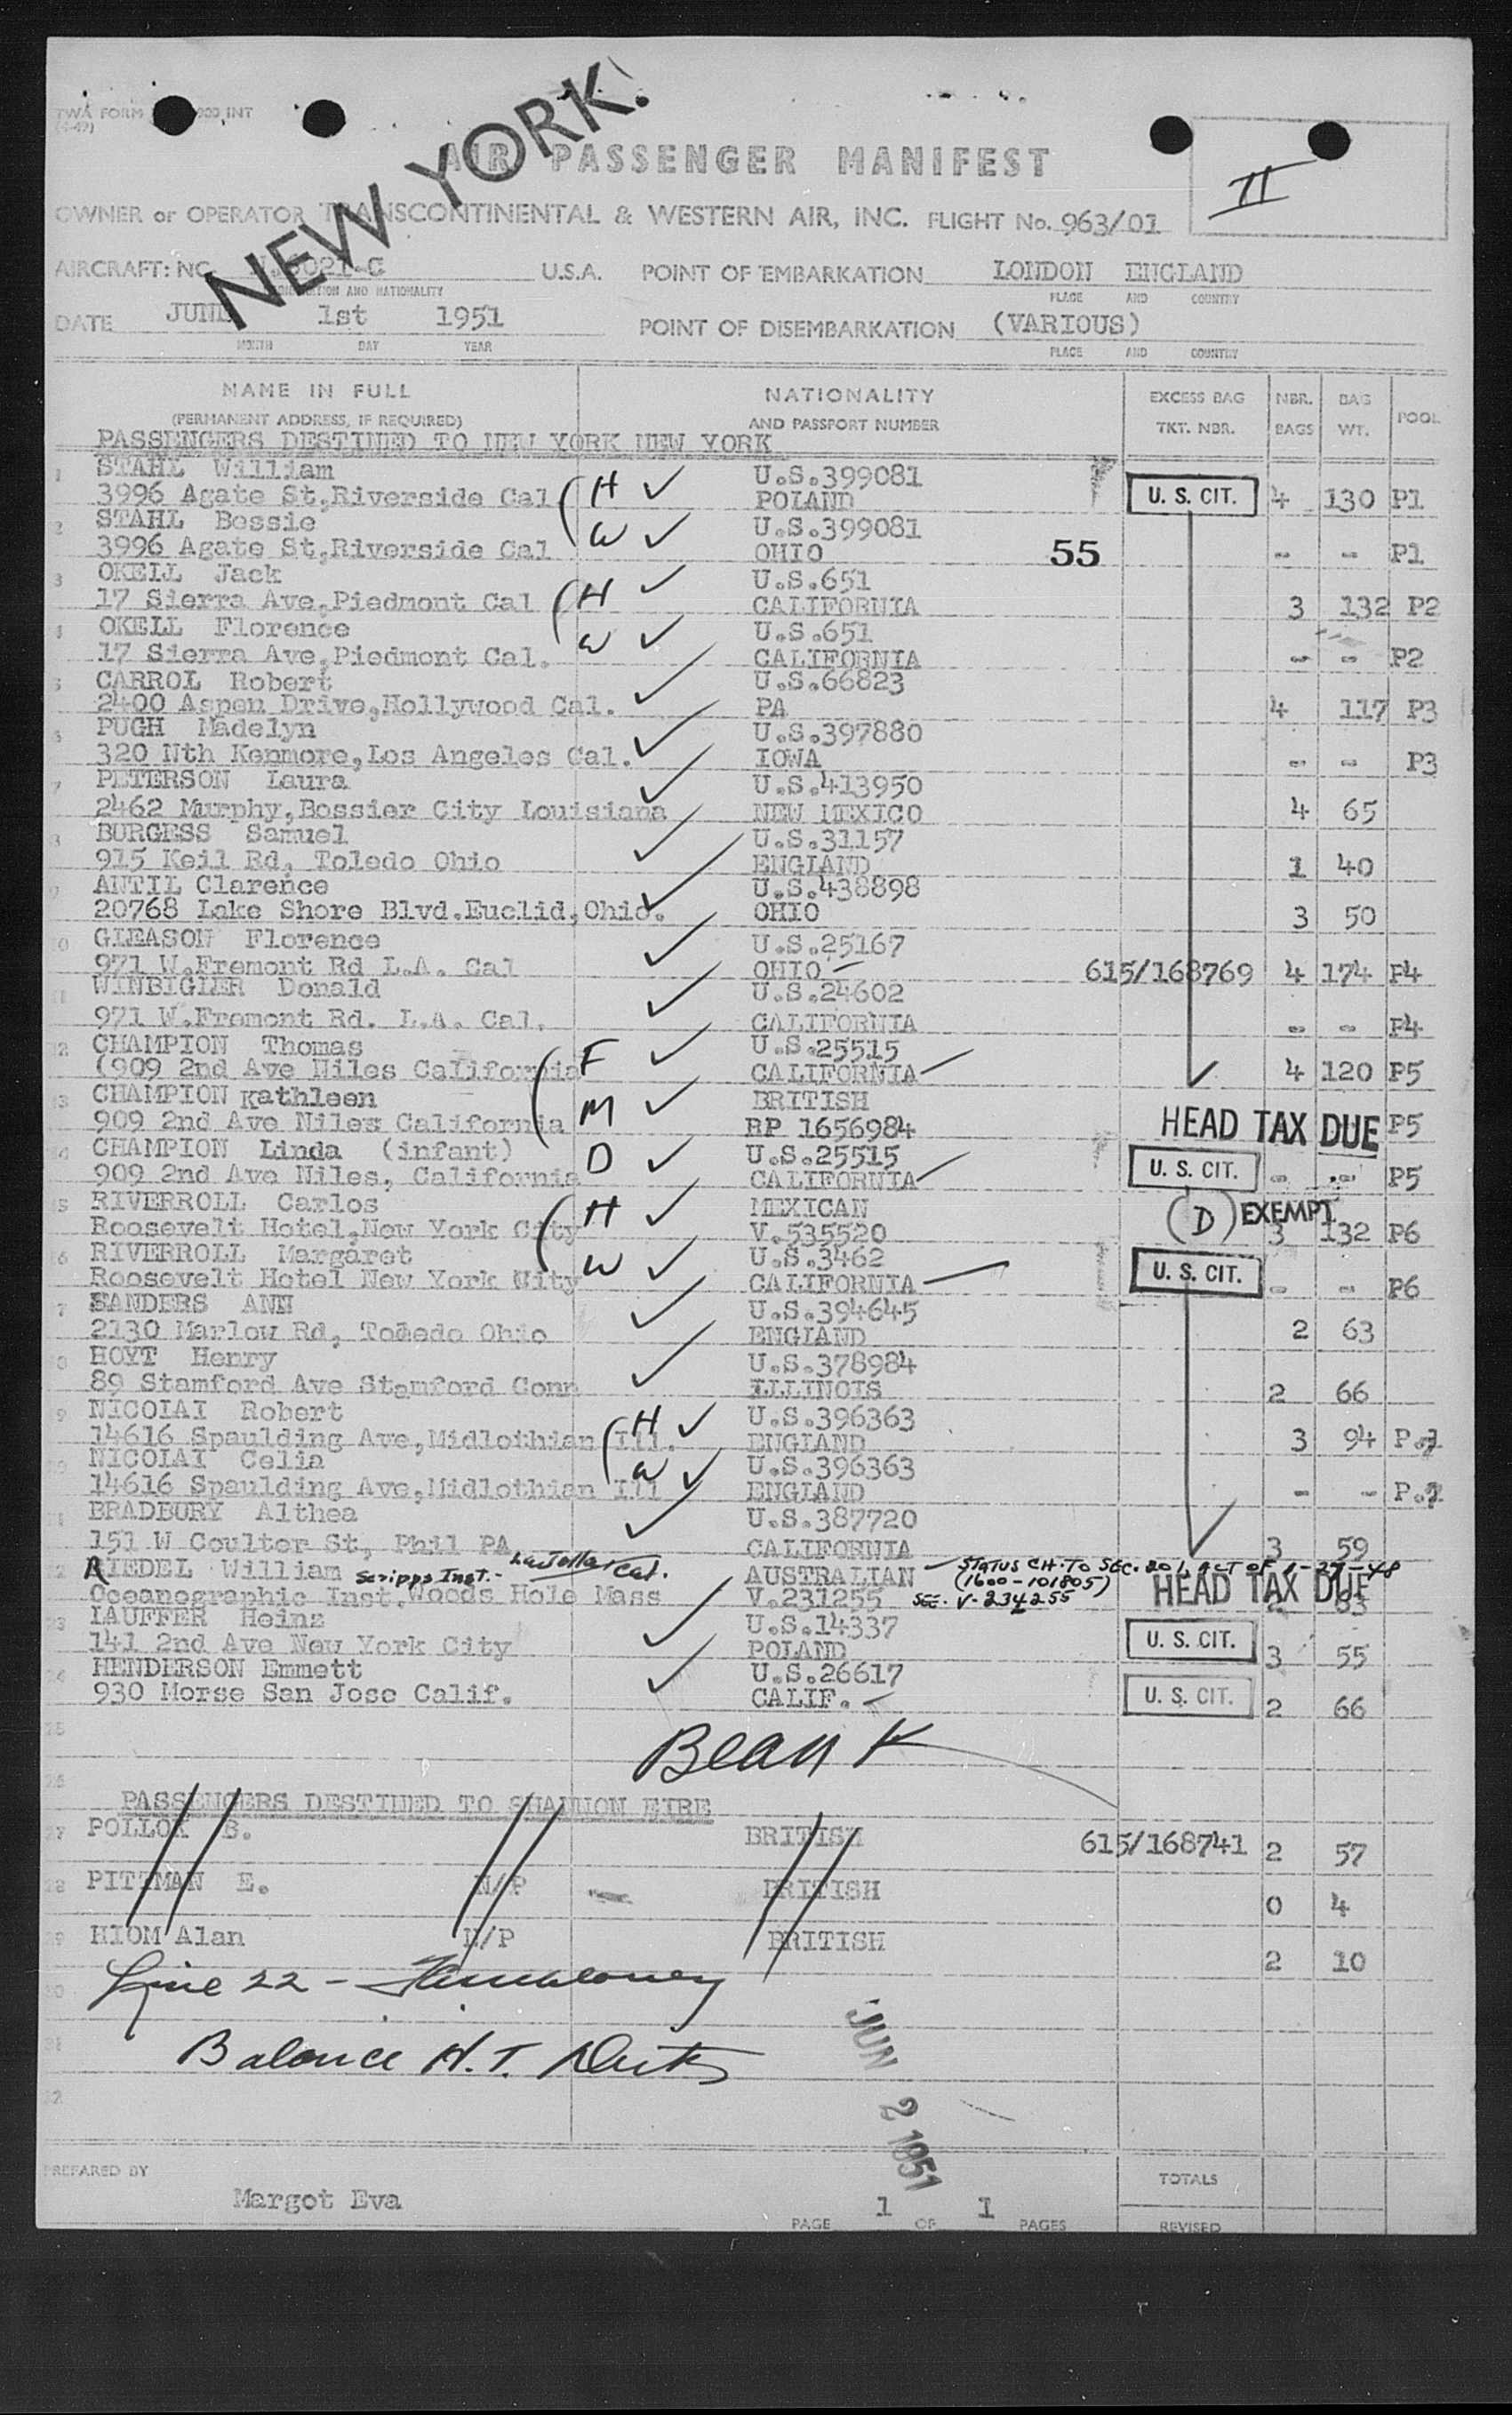 TWA FORM 900 INT
(4-49)
NEW YORK.
II
AIR PASSENGER MANIFEST
OWNER or OPERATOR TRANSCONTINENTAL & WESTERN AIR, INC. FLIGHT No. 963/01
AIRCRAFT: NC 6021-C U.S.A. POINT OF EMBARKATION LONDON ENGLAND
AND NATIONALITY PLACE AND COUNTRY
DATE JUNE 1st 1951 POINT OF DISEMBARKATION (VARIOUS)
MONTH DAY YEAR PLACE AND COUNTRY
NAME IN FULL NATIONALITY EXCESS BAG NBR. BAG POOL
(PERMANENT ADDRESS, IF REQUIRED) AND PASSPORT NUMBER TKT. NBR. BAGS WT.
PASSENGERS DESTINED TO NEW YORK NEW YORK
1 STAHL William U.S.399081
3996 Agate St,Riverside Cal (H ✓ POLAND U. S. CIT. 4 130 P1
2 STAHL Bessie W ✓ U.S.399081
3996 Agate St,Riverside Cal OHIO 55 - - P1
3 OKELL Jack U.S.651
17 Sierra Ave,Piedmont Cal (H ✓ CALIFORNIA 3 132 P2
4 OKELL Florence W ✓ U.S.651
17 Sierra Ave,Piedmont Cal. CALIFORNIA - - P2
5 CARROL Robert ✓ U.S.66823
2400 Aspen Drive,Hollywood Cal. PA 4 117 P3
6 PUGH Madelyn ✓ U.S.397880
320 Nth Kenmore,Los Angeles Cal. IOWA - - P3
7 PETERSON Laura ✓ U.S.413950
2462 Murphy,Bossier City Louisiana NEW MEXICO 4 65
8 BURGESS Samuel ✓ U.S.31157
915 Keil Rd, Toledo Ohio ENGLAND 1 40
9 ANTIL Clarence ✓ U.S.438898
20768 Lake Shore Blvd.Euclid,Ohio. OHIO 3 50
10 GLEASON Florence ✓ U.S.25167
971 W.Fremont Rd L.A. Cal OHIO 615/168769 4 174 P4
11 WINBIGLER Donald ✓ U.S.24602
971 W.Fremont Rd. L.A. Cal. CALIFORNIA - - P4
12 CHAMPION Thomas U.S.25515
(909 2nd Ave Niles California (F ✓ CALIFORNIA 4 120 P5
13 CHAMPION Kathleen M ✓ BRITISH
909 2nd Ave Niles California RP 1656984 HEAD TAX DUE P5
14 CHAMPION Linda (infant) D ✓ U.S.25515
909 2nd Ave Niles, California CALIFORNIA U. S. CIT. - - P5
15 RIVERROLL Carlos (H ✓ MEXICAN
Roosevelt Hotel,New York City V.535520 (D) EXEMPT 3 132 P6
16 RIVERROLL Margaret W ✓ U.S.3462
Roosevelt Hotel New York City CALIFORNIA U. S. CIT. - - P6
17 SANDERS ANN ✓ U.S.394645
2130 Marlow Rd, Toledo Ohio ENGLAND 2 63
18 HOYT Henry ✓ U.S.378984
89 Stamford Ave Stamford Conn ILLINOIS 2 66
19 NICOLAI Robert (H ✓ U.S.396363
14616 Spaulding Ave,Midlothian Ill. ENGLAND 3 94 P.7
NICOLAI Celia W ✓ U.S.396363
14616 Spaulding Ave,Midlothian Ill ENGLAND - - P.7
BRADBURY Althea ✓ U.S.387720
151 W Coulter St, Phil PA CALIFORNIA 3 59
22 RIEDEL William Scripps Inst. - La Jolla Cal. AUSTRALIAN - STATUS CH. TO SEC. 201, ACT OF 1-27-48
Oceanographic Inst.Woods Hole Mass V.231255 (1600-101805) SEE. V-234255 HEAD TAX DUE 2 63
23 LAUFFER Heinz ✓ U.S.14337
141 2nd Ave New York City POLAND U. S. CIT. 3 55
24 HENDERSON Emmett ✓ U.S.26617
930 Morse San Jose Calif. CALIF. U. S. CIT. 2 66
25
26
PASSENGERS DESTINED TO SHANNON EIRE
27 POLLOK S. BRITISH 615/168741 2 57
28 PITTMAN E. N/P BRITISH 0 4
29 HIOM Alan N/P BRITISH 2 10
Line 22 -
30
31 Balance H.T.
JUN 2 1951
32
PREPARED BY TOTALS
Margot Eva PAGE 1 OF 1 PAGES REVISED